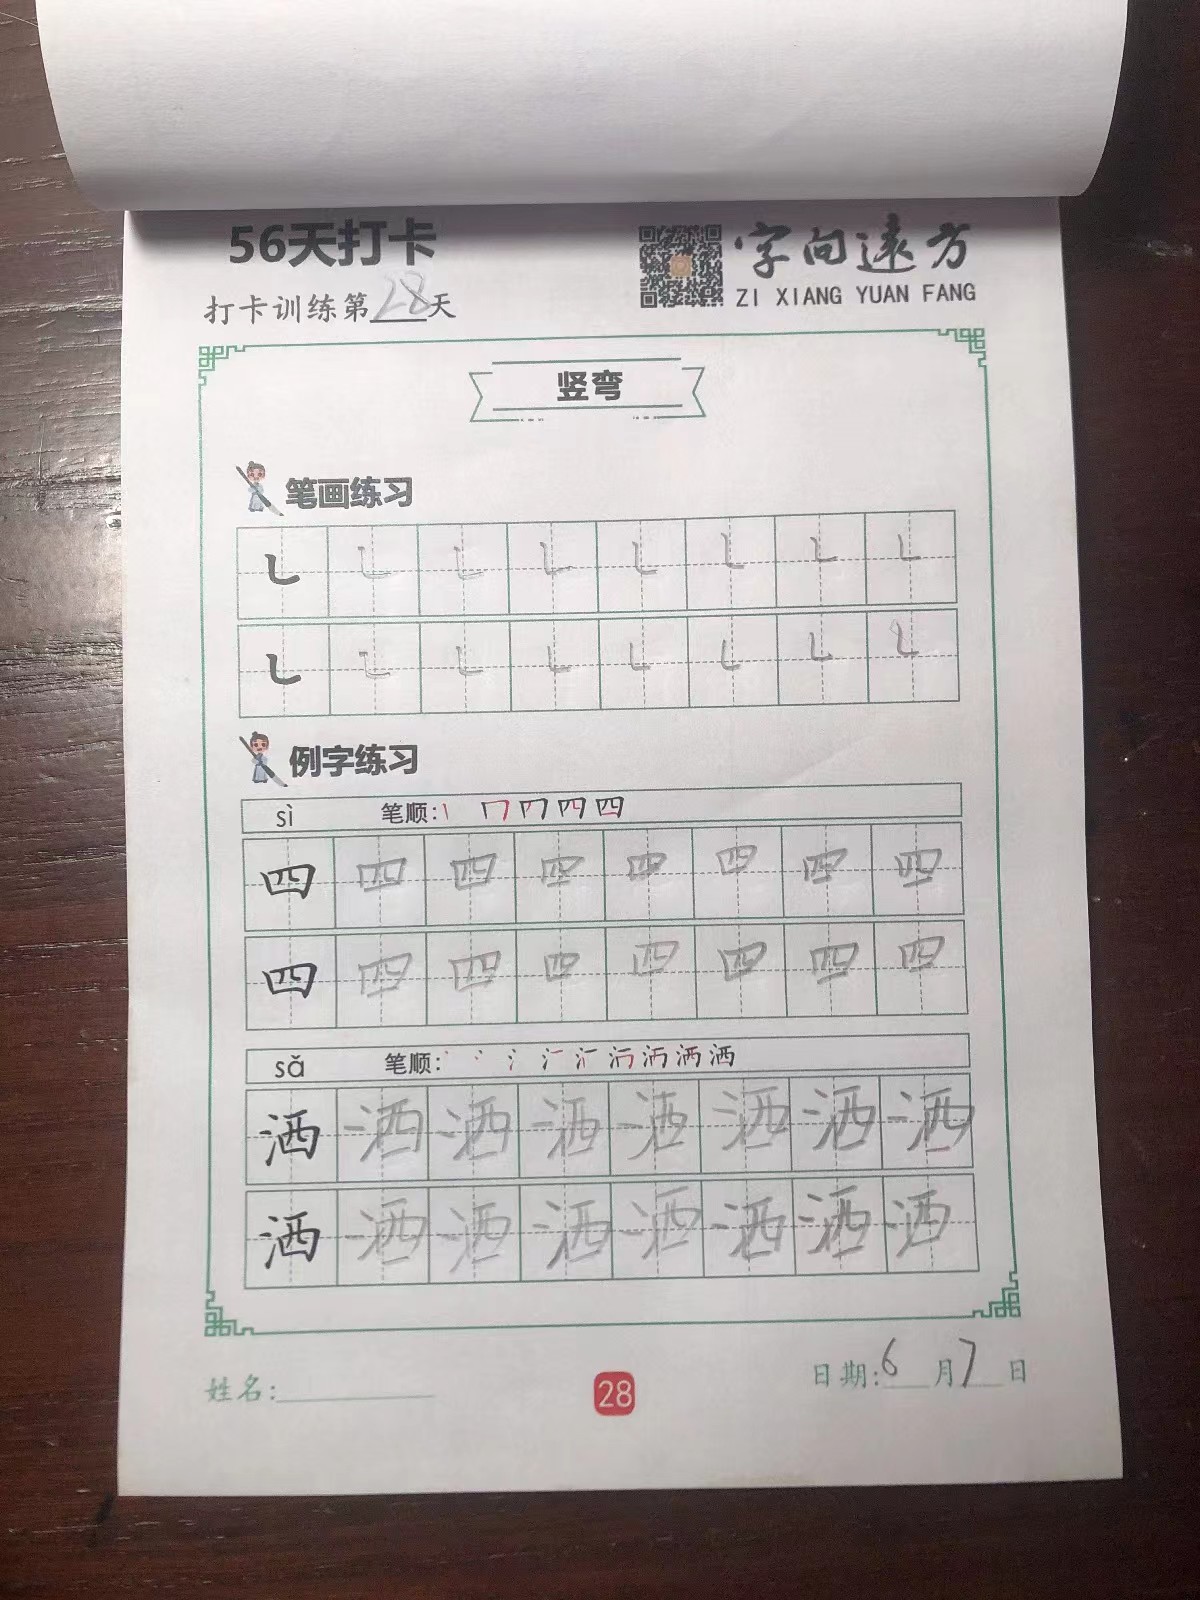 56天打卡
字向远方
ZI XIANG YUAN FANG
打卡训练第28天
竖弯
笔画练习
㇄ ㇄ ㇄ ㇄ ㇄ ㇄ ㇄ ㇄
㇄ ㇄ ㇄ ㇄ ㇄ ㇄ ㇄ ㇄
例字练习
sì 笔顺: 四
四 四 四 四 四 四 四 四
四 四 四 四 四 四 四 四
sǎ 笔顺: 洒
洒 洒 洒 洒 洒 洒 洒 洒
洒 洒 洒 洒 洒 洒 洒 洒
姓名:
28
日期:6月7日